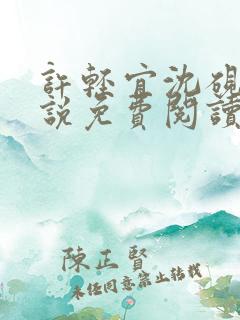 許輕宜沈硯
說免費閱讀
陳正賢
未經同意禁止轉載